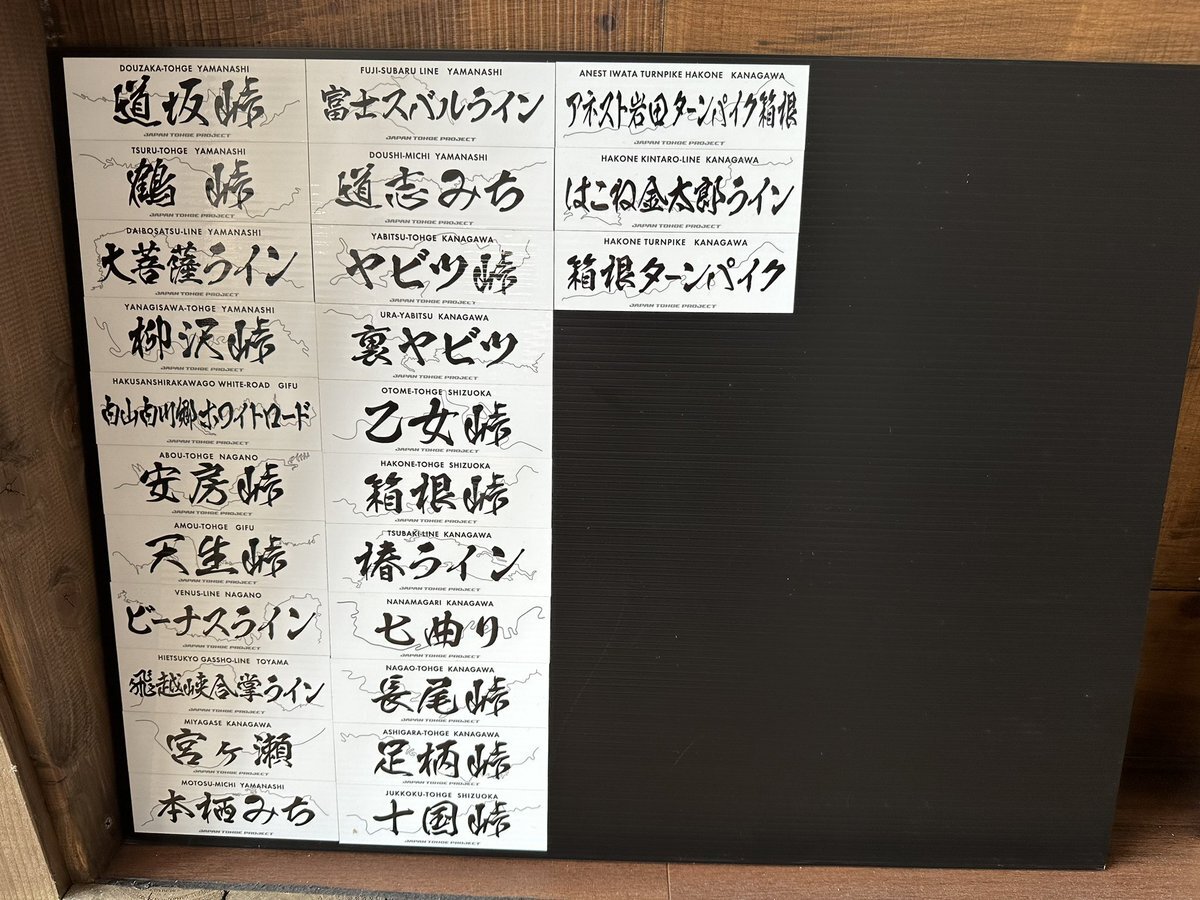 DOUZAKA-TOHGE YAMANASHI
道坂峠
JAPAN TOHGE PROJECT
TSURU-TOHGE YAMANASHI
鶴 峠
JAPAN TOHGE PROJECT
DAIBOSATSU-LINE YAMANASHI
大菩薩ライン
JAPAN TOHGE PROJECT
YANAGISAWA-TOHGE YAMANASHI
柳沢峠
JAPAN TOHGE PROJECT
HAKUSANSHIRAKAWAGO WHITE-ROAD GIFU
白山白川郷ホワイトロード
JAPAN TOHGE PROJECT
ABOU-TOHGE NAGANO
安房峠
JAPAN TOHGE PROJECT
AMOU-TOHGE GIFU
天生峠
JAPAN TOHGE PROJECT
VENUS-LINE NAGANO
ビーナスライン
JAPAN TOHGE PROJECT
HIETSUKYO GASSHO-LINE TOYAMA
飛越峡合掌ライン
JAPAN TOHGE PROJECT
MIYAGASE KANAGAWA
宮ヶ瀬
JAPAN TOHGE PROJECT
MOTOSU-MICHI YAMANASHI
本栖みち
JAPAN TOHGE PROJECT
FUJI-SUBARU LINE YAMANASHI
富士スバルライン
JAPAN TOHGE PROJECT
DOUSHI-MICHI YAMANASHI
道志みち
JAPAN TOHGE PROJECT
YABITSU-TOHGE KANAGAWA
ヤビツ峠
JAPAN TOHGE PROJECT
URA-YABITSU KANAGAWA
裏ヤビツ
JAPAN TOHGE PROJECT
OTOME-TOHGE SHIZUOKA
乙女峠
JAPAN TOHGE PROJECT
HAKONE-TOHGE SHIZUOKA
箱根峠
JAPAN TOHGE PROJECT
TSUBAKI-LINE KANAGAWA
椿ライン
JAPAN TOHGE PROJECT
NANAMAGARI KANAGAWA
七曲り
JAPAN TOHGE PROJECT
NAGAO-TOHGE KANAGAWA
長尾峠
JAPAN TOHGE PROJECT
ASHIGARA-TOHGE KANAGAWA
足柄峠
JAPAN TOHGE PROJECT
JUKKOKU-TOHGE SHIZUOKA
十国峠
JAPAN TOHGE PROJECT
ANEST IWATA TURNPIKE HAKONE KANAGAWA
アネスト岩田ターンパイク箱根
JAPAN TOHGE PROJECT
HAKONE KINTARO-LINE KANAGAWA
はこね金太郎ライン
JAPAN TOHGE PROJECT
HAKONE TURNPIKE KANAGAWA
箱根ターンパイク
JAPAN TOHGE PROJECT